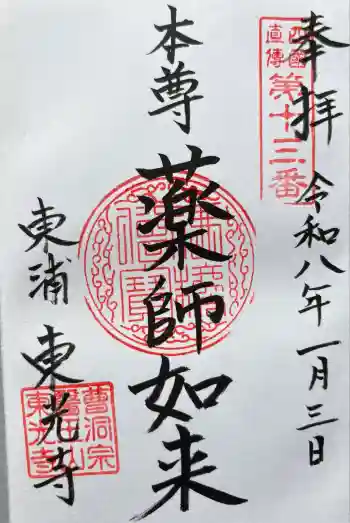 奉拝
令和八年一月三日
西國
直傳
第十三番
本尊
薬師如来
佛法僧寶
東浦 東光寺
曹洞宗
醫王山
東光寺